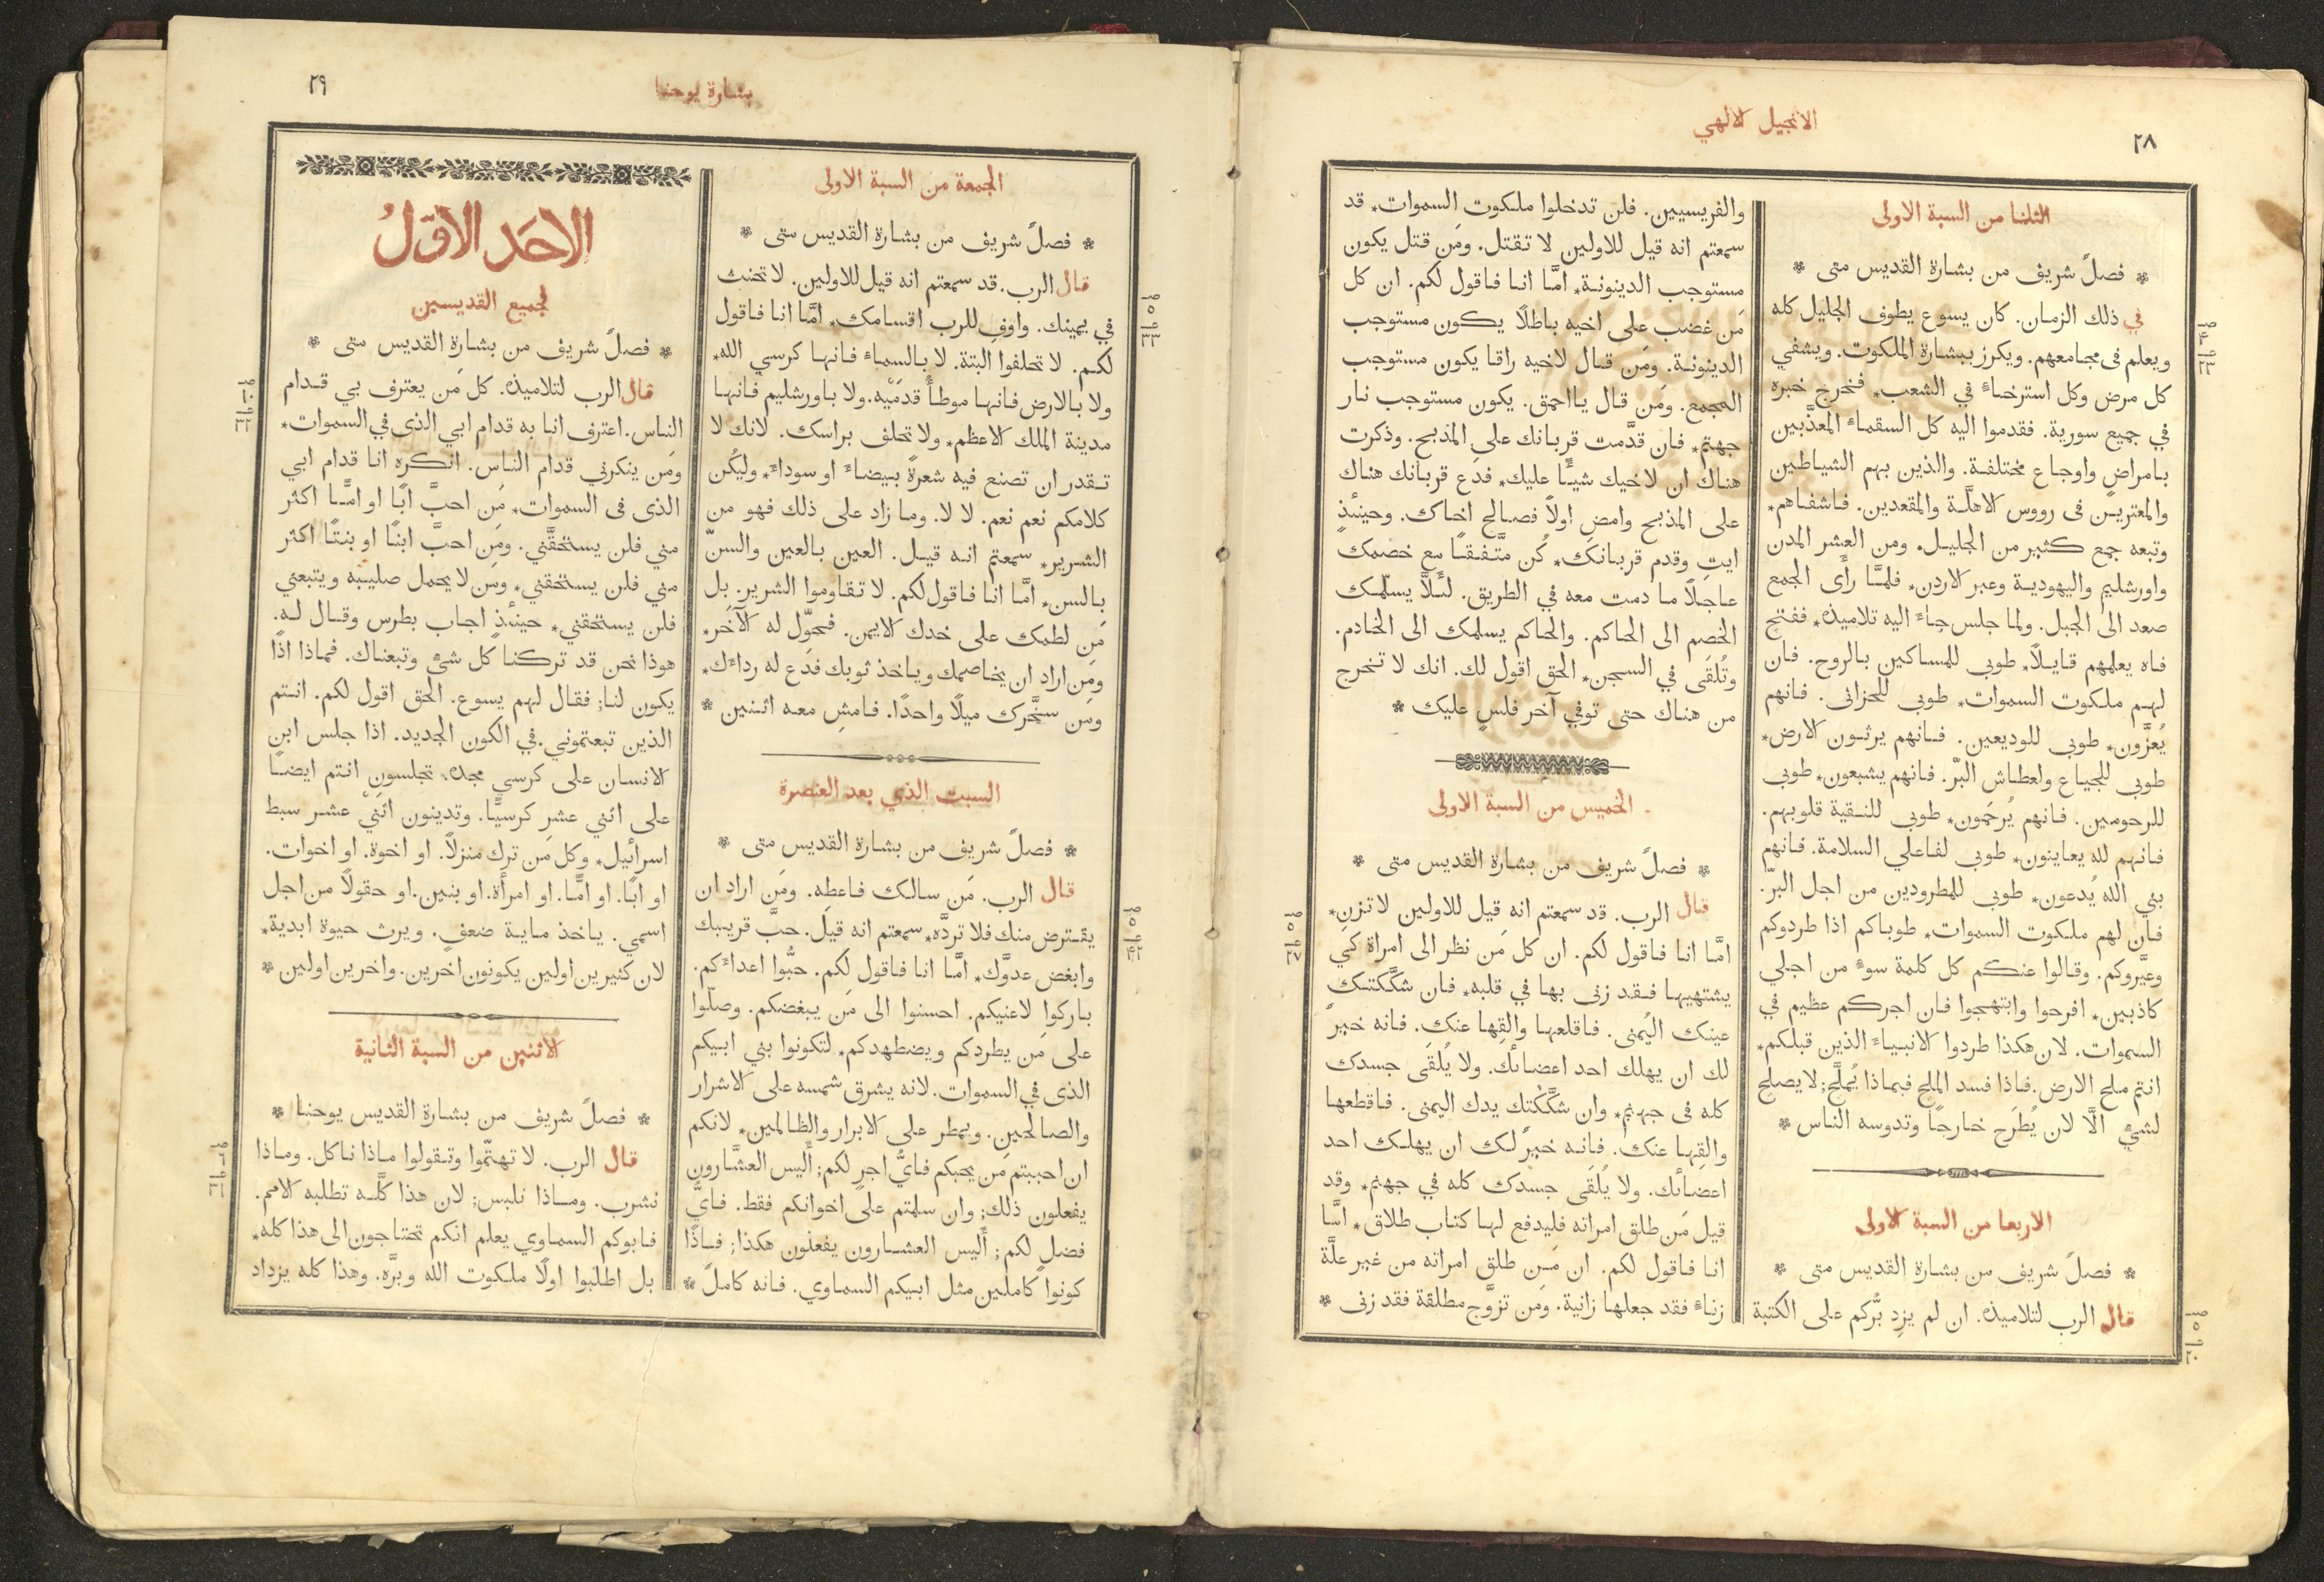 الانجيل الالهي
٢٨
الثلثا من السبة الاولى
* فصلٌ شريف من بشارة القديس متى *
في ذلك الزمان. كان يسوع يطوف الجليل كله
ويعلم فى مجامعهم. ويكرز ببشارة الملكوت. ويشفي
كل مرض وكل استرخاءٍ في الشعب* فخرج خبره
في جميع سورية. فقدموا اليه كل السقماءِ المعذَّبين
بامراضٍ واوجاع مختلفة. والذين بهم الشياطين
والمعتريـن فى رووس الاهلَّـة والمقعدين. فاشفاهم*
وتبعه جمع كثير من الجليـل. ومن العشر المدن
واورشليم واليهوديـة وعبر الاردن* فلمَّـا رأَى الجمع
صعد الى الجبل. ولما جلس جاءَ اليه تلاميذه* ففتح
فاه يعلمهم قايـلاً* طوبى للمساكين بالروح. فان
لهم ملكوت السموات* طوبى للحزانى. فانهم
يُعزَّون* طوبى للوديعين. فـانهم يرثـون الارض*
طوبى للجياع ولعطاش البرّ. فانهم يشبعون* طوبى
للرحومين. فانهم يُرحَمون* طوبى للنـقية قلوبهم.
فانهم لله يعاينون* طوبى لفاعلي السلامة. فانهم
بني الله يُدعون* طوبى للمطرودين من اجل البرّ.
فان لهم ملكوت السموات* طوباكم اذا طردوكم
وعيَّروكم. وقالوا عنـكم كل كلمة سوءٍ من اجلي
كاذبين* افرحوا وابتهجوا فان اجركم عظيم في
السموات. لان هكذا طردوا الانبـياءَ الذين قبلكم*
انتم ملح الارض. فاذا فسد الملح فبماذا يُملَّح; لا يصلح
لشيءٍ الَّا لان يُطرَح خارجًا وتدوسه الناس *
الاربعا من السبة الاولى
* فصلٌ شريف من بشارة القديس متى *
قال الرب لتلاميذه. ان لم يزِد برُّكم على الكتبة
ص
٤
٩
٢٣
ص
٥
٩
٢٠
والفريسيين. فلن تدخلوا ملكوت السموات* قد
سمعتم انه قيل للاولين لا تقتل. ومَن قتل يكون
مستوجب الدينونـة* امَّا انا فاقول لكم. ان كل
مَن غضب على اخيه باطلاً يـكون مستوجب
الدينونـة. ومَن قال لاخيه راقا يكون مستوجب
المجمع. ومَن قال يااحمق. يكون مستوجب نار
جهنم* فان قدَّمت قربانك على المذبح. وذكرت
هناك ان لاخيك شيـًٔا عليك* فدَع قربانك هناك
على المذبح وامضِ اولاً فصالح اخاك. وحينئذٍ
ايتِ وقدم قربـانك* كُن متَّـفـقـًا مع خصمك
عاجلاً ما دمت معه في الطريق. لئـلَّا يسلّمـك
الخصم الى الحاكم. والحاكم يسلمك الى الخادم.
وتُلقَى في السجن* الحق اقول لك. انك لا تخرج
من هناك حتى توفي آخر فلسٍ عليك *
الخميس من السبة الاولى
* فصلٌ شريف من بشارة القديس متى *
قال الرب. قد سمعتم انه قيل للاولين لا تزنِ*
امَّا انا فاقول لكم. ان كل مَن نظر الى امراة كي
يشتهيها فـقد زنى بها في قلبه* فان شكَّكتـك
عينك اليُمنى. فاقلعها والقِها عنك. فانه خيرٌ
لك ان يهلك احد اعضائك. ولا يُلقَى جسدك
كله فى جهنم* وان شكَّكْتك يدك اليمنى. فاقطعها
والقِها عنك. فانـه خيرٌ لـك ان يهلـك احد
اعضائك. ولا يُلقَى جسدك كله في جهنم* وقد
قيل مَن طلق امراته فليدفع لها كتاب طلاق* امَّا
انا فاقول لكم. ان مَـن طلق امراته من غير علَّة
زناءٍ فقد جعلها زانية. ومَن تزوَّج مطلقة فقد زنى *
ص
٥
٩
٢٧
بشارة يوحنا
٢٩
الجمعة من السبة الاولى
* فصلٌ شريف من بشارة القديس متى *
قال الرب. قد سمعتم انه قيل للاولين. لا تحنث
في يمينك. واوفِ للرب اقسامك* امَّا انا فاقول
لكـم. لا تحلفوا البتة. لا بالسماءِ فـانها كرسي الله*
ولا بالارض فانها موطأُ قدمَيْه. ولا باورشليم فانها
مدينة الملك الاعظم* ولا تحلف براسك. لانك لا
تـقدر ان تصنع فيه شعرةً بيضاءَ او سوداءَ* وليكُن
كلامكم نعم نعم. لا لا. وما زاد على ذلك فهو من
الشرير* سمعتم انـه قيـل. العين بالعين والسنّ
بالسن* امَّا انا فـاقول لكم. لا تقاوموا الشرير. بل
مَن لطمك على خدك الايمن. فحوِّل له الآخَر*
ومَن اراد ان يخاصمك وياخذ ثوبك فدَع له رداءَك*
ومَن سخَّرك ميلًا واحدًا. فـامشِ معـه اثـنين *
السبت الذي بعد العنصرة
* فصلٌ شريف من بشارة القديس متى *
قال الرب. مَن سالك فاعطِه. ومَن اراد ان
يقـترض منك فلا تردَّه* سمعتم انه قيل. حبَّ قريبك
وابغض عدوَّك* امَّا انا فاقول لكم. حبُّوا اعداءَكم.
باركوا لاعنيكم. احسنوا الى مَن يبغضكم. وصلّوا
على مَن يطردكم ويضطهدكم* لتكونوا بني ابيكم
الذى في السموات. لانه يشرق شمسه على الاشرار
والصالحين. ويمطر على الابرار والظالمين* لانكم
ان احببتم مَن يحبكم فايُّ اجرٍ لكم; أَليس العشَّارون
يفعلون ذلك; وان سلمتم على اخوانكم فقط. فايَّ
فضلٍ لكم; أَليس العشـارون يفعلون هكذا; فـاذًا
كونوا كاملين مثل ابيكم السماوي. فانه كاملٌ *
ص
٥
٩
٣٣
ص
٥
٩
٤٢
الاحَد الاوّلُ
لجميع القديسين
* فصلٌ شريف من بشارة القديس متى *
قال الرب لتلاميذه. كل مَن يعترف بي قـدام
الناس. اعترف انا به قدام ابي الذى في السموات*
ومَن ينكرني قدام الناس. انكره انا قدام ابي
الذى فى السموات* مَن احبَّ ابًا او امًّـا اكثر
مني فلن يستحقَّني. ومَن احبَّ ابنًا او بنتًا اكثر
مني فلن يستحقني* ومَن لا يحمل صليبه ويتبعني
فلن يستحقني* حينئذٍ اجاب بطرس وقـال لـه.
هوذا نحن قد تركنا كل شيءٍ وتبعناك. فماذا اذًا
يكون لنا; فقال لهم يسوع. الحق اقول لكم. انـتم
الذين تبعتموني. في الكون الجديد. اذا جلس ابن
الانسان على كرسي مجده. تجلسون انتم ايضـًا
على اثني عشر كرسيًّا. وتدينون اثنَيْ عشـر سبط
اسرائيل* وكل مَن ترك منزلاً. او اخوة. او اخوات.
او ابًا. او امًّـا. او امرأَة. او بنين. او حقولاً من اجل
اسمي. ياخذ مايـة ضعفٍ. ويرث حيوة ابدية*
لان كثيرين اولين يكونون اخَرين. واخرين اولين *
الاثنين من السبة الثانية
* فصلٌ شريف من بشارة القديس يوحنا *
قال الرب. لا تهتمّوا وتـقولوا ماذا ناكل. وماذا
نشرب. ومـاذا نلبس; لان هذا كلَّـه تطلبه الامم.
فابوكم السماوي يعلم انكم تحتاجون الى هذا كله*
بل اطلبوا اولًا ملكوت الله وبرَّه. وهذا كله يزداد
ص
١٠
٩
٣٢
ص
٦
٩
٣١